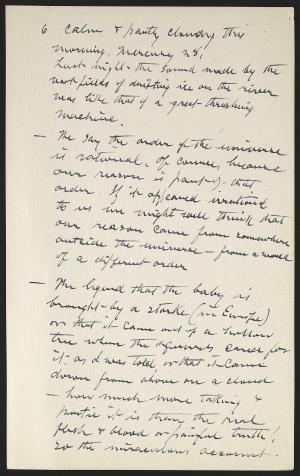 6 Calm & partly cloudy this
morning. Mercury 28,
Last night the sound made by the
vast fields of drifting ice on the river
was like that of a great thrashing
machine.
— We say the order of the universe
is rational. Of course, because
our reason is part of that
order. If it appeared irrational
to us we might well think that
our reason came from somewhere
outside the universe — from a world
of a different order
— The legend that the baby is
brought by a stork (in Europe)
or that it came out of a hollow
tree where the squirrels cared for
it, as I was told, or that it came
down from above on a cloud
— how much more taking &
poetic it is than the real
flesh & blood or painful truth!
So the miraculous account